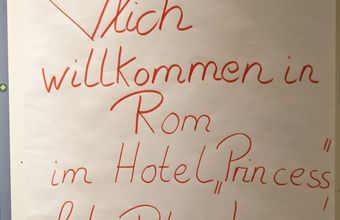 lich
willkommen in
Rom
im Hotel „Princess"